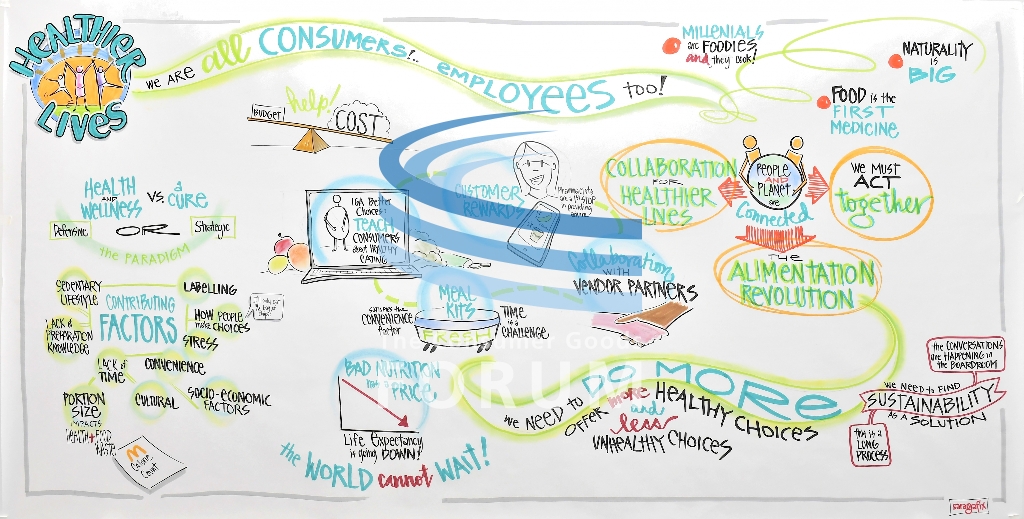 HEALTHIER
LIVES
WE ARE all CONSUMERS!.. EMPLOYEES TOO!
MILLENIALS
are FOODIES
and they cook!
NATURALITY
IS
BIG
FOOD is the
FIRST
MEDICINE
help!
BUDGET
COST
HEALTH
AND
WELLNESS
VS.
a
CURE
Defensive
OR
Strategic
the PARADIGM
IGA Better
Choices
TEACH
CONSUMERS
about HEALTHY
EATING
CUSTOMER
REWARDS
COLLABORATION
FOR
HEALTHIER
LIVES
PEOPLE
AND
PLANET
are
Connected
WE MUST
ACT
together
THE
ALIMENTATION
REVOLUTION
Collaborations
WITH
VENDOR PARTNERS
SEDENTARY
LIFESTYLE
CONTRIBUTING
FACTORS
LABELLING
HOW PEOPLE
make CHOICES
STRESS
LACK of
PREPARATION
KNOWLEDGE
LACK of
TIME
CONVENIENCE
PORTION
SIZE
IMPACTS
CULTURAL
SOCIO-ECONOMIC
FACTORS
Calorie
Count
MEAL
KITS
satisfies the
CONVENIENCE
factor
TIME
is a
CHALLENGE
The Consumer Goods
FORUM
BAD NUTRITION
has a
PRICE
Life Expectancy
is going DOWN!
the WORLD cannot WAIT!
DO MORE
WE NEED TO
OFFER more HEALTHY CHOICES
and
less
UNHEALTHY CHOICES
the CONVERSATIONS
are HAPPENING in
the BOARDROOM
WE NEED to FIND
SUSTAINABILITY
AS A
SOLUTION
this is a
LONG
PROCESS